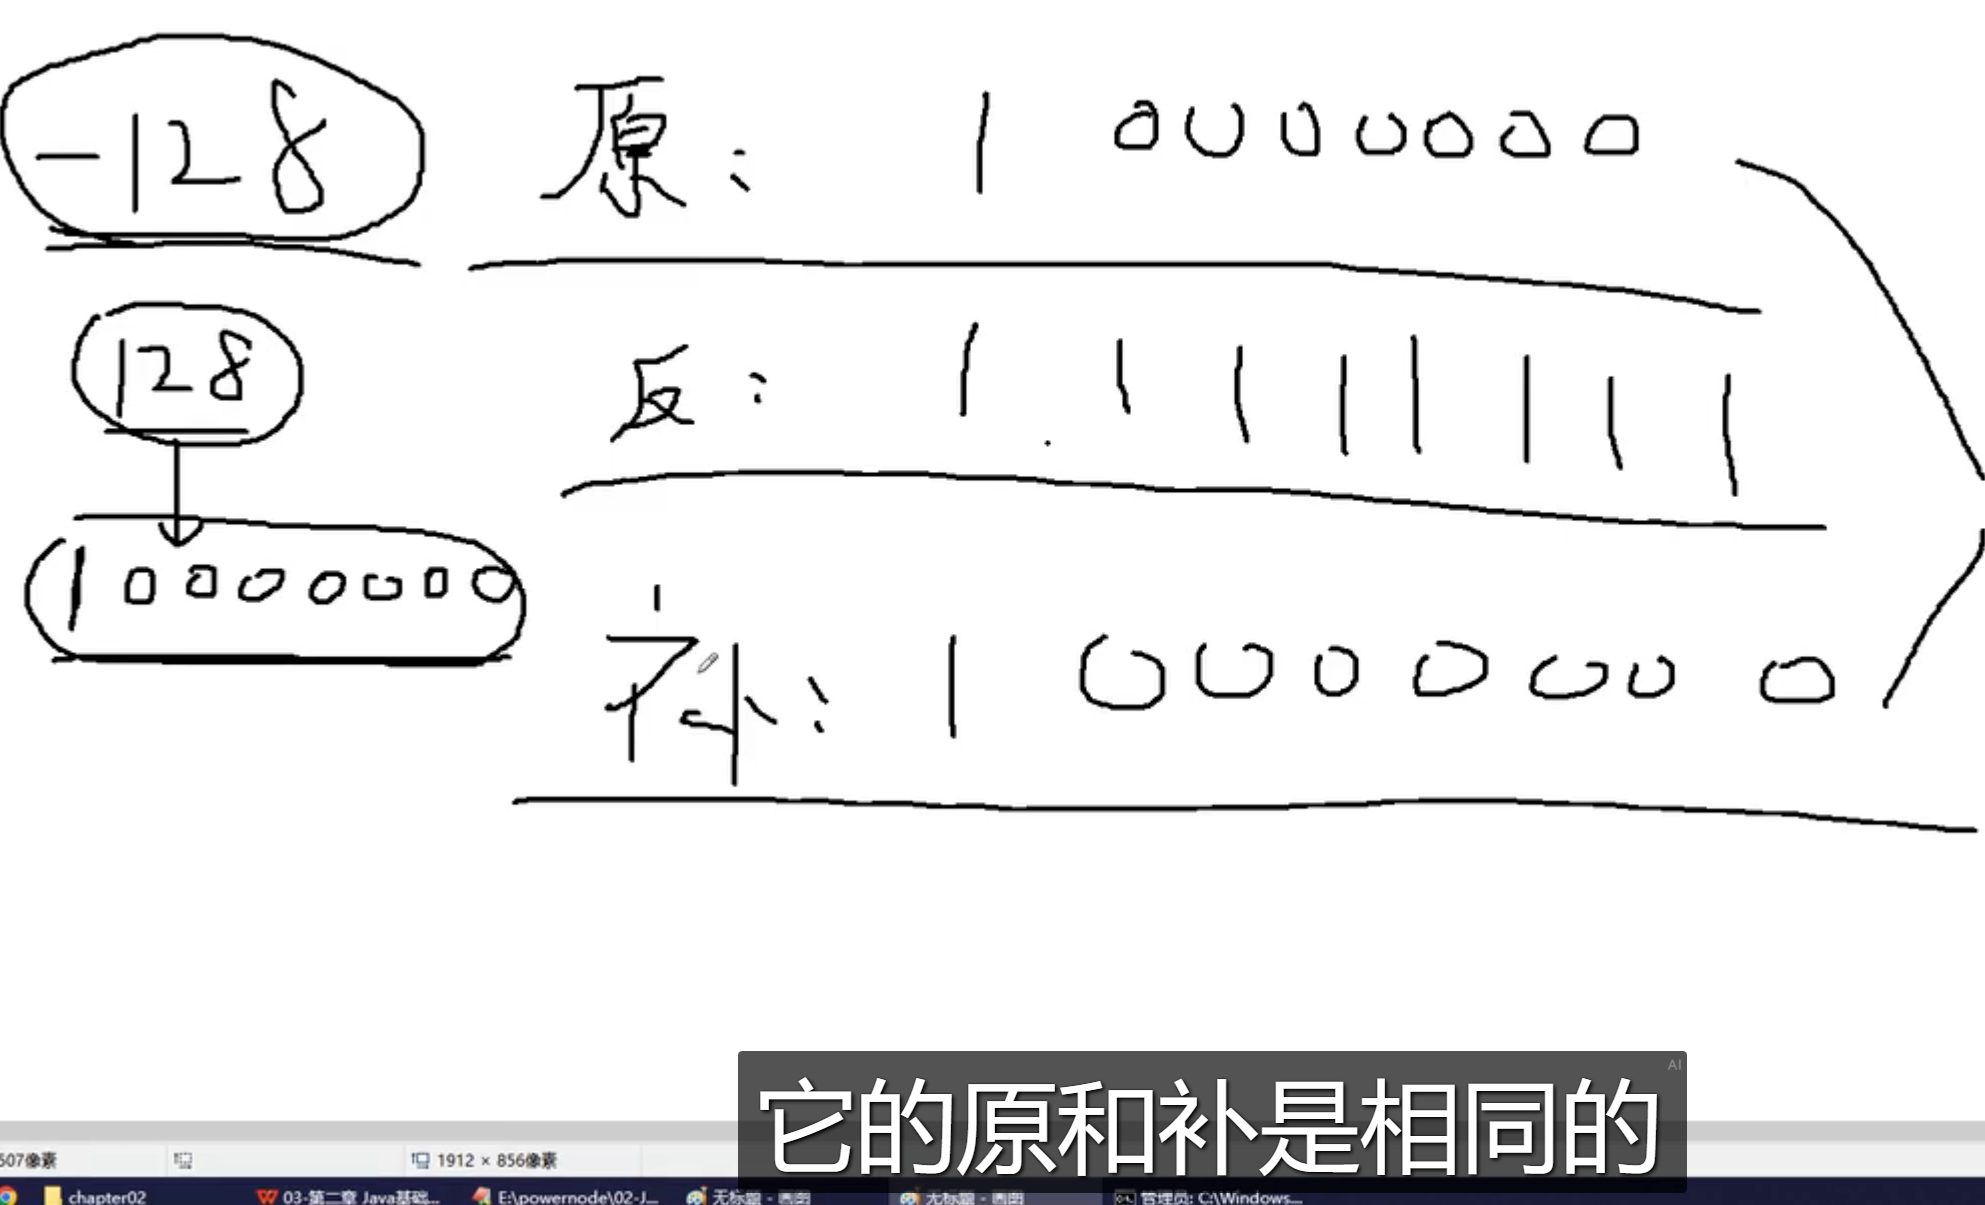 -128 原: 1 0000000
128 反: 1 1 1 1 1 1 1 1
1 0000000
补: 1 0000000
AI
它的原和补是相同的
607像素 1912 × 856像素
chapter02 03-第二章 Java基础... E:\powernode\02-J... 无标题 - 画图 无标题 - 画图 管理员: C:\Windows...